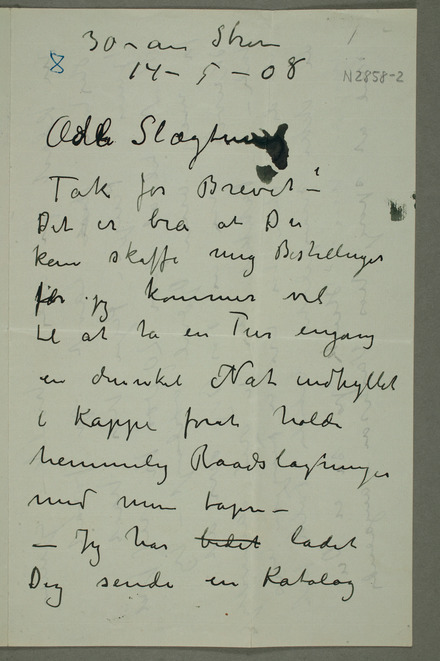 14 – 5 – 08
8
N2858-2
Ædle Slægtning
Tak for Brevet –!
Det er bra at Du
kan skaffe mig Bestillinger
for jeg kommer vel
til at ta en Tur engang
en dunkel Nat indhyllet
i Kappe forat holde
hemmelig Raadslagninger
med min tapre –
– Jeg har bedet ladet
Dig sende en Katalog